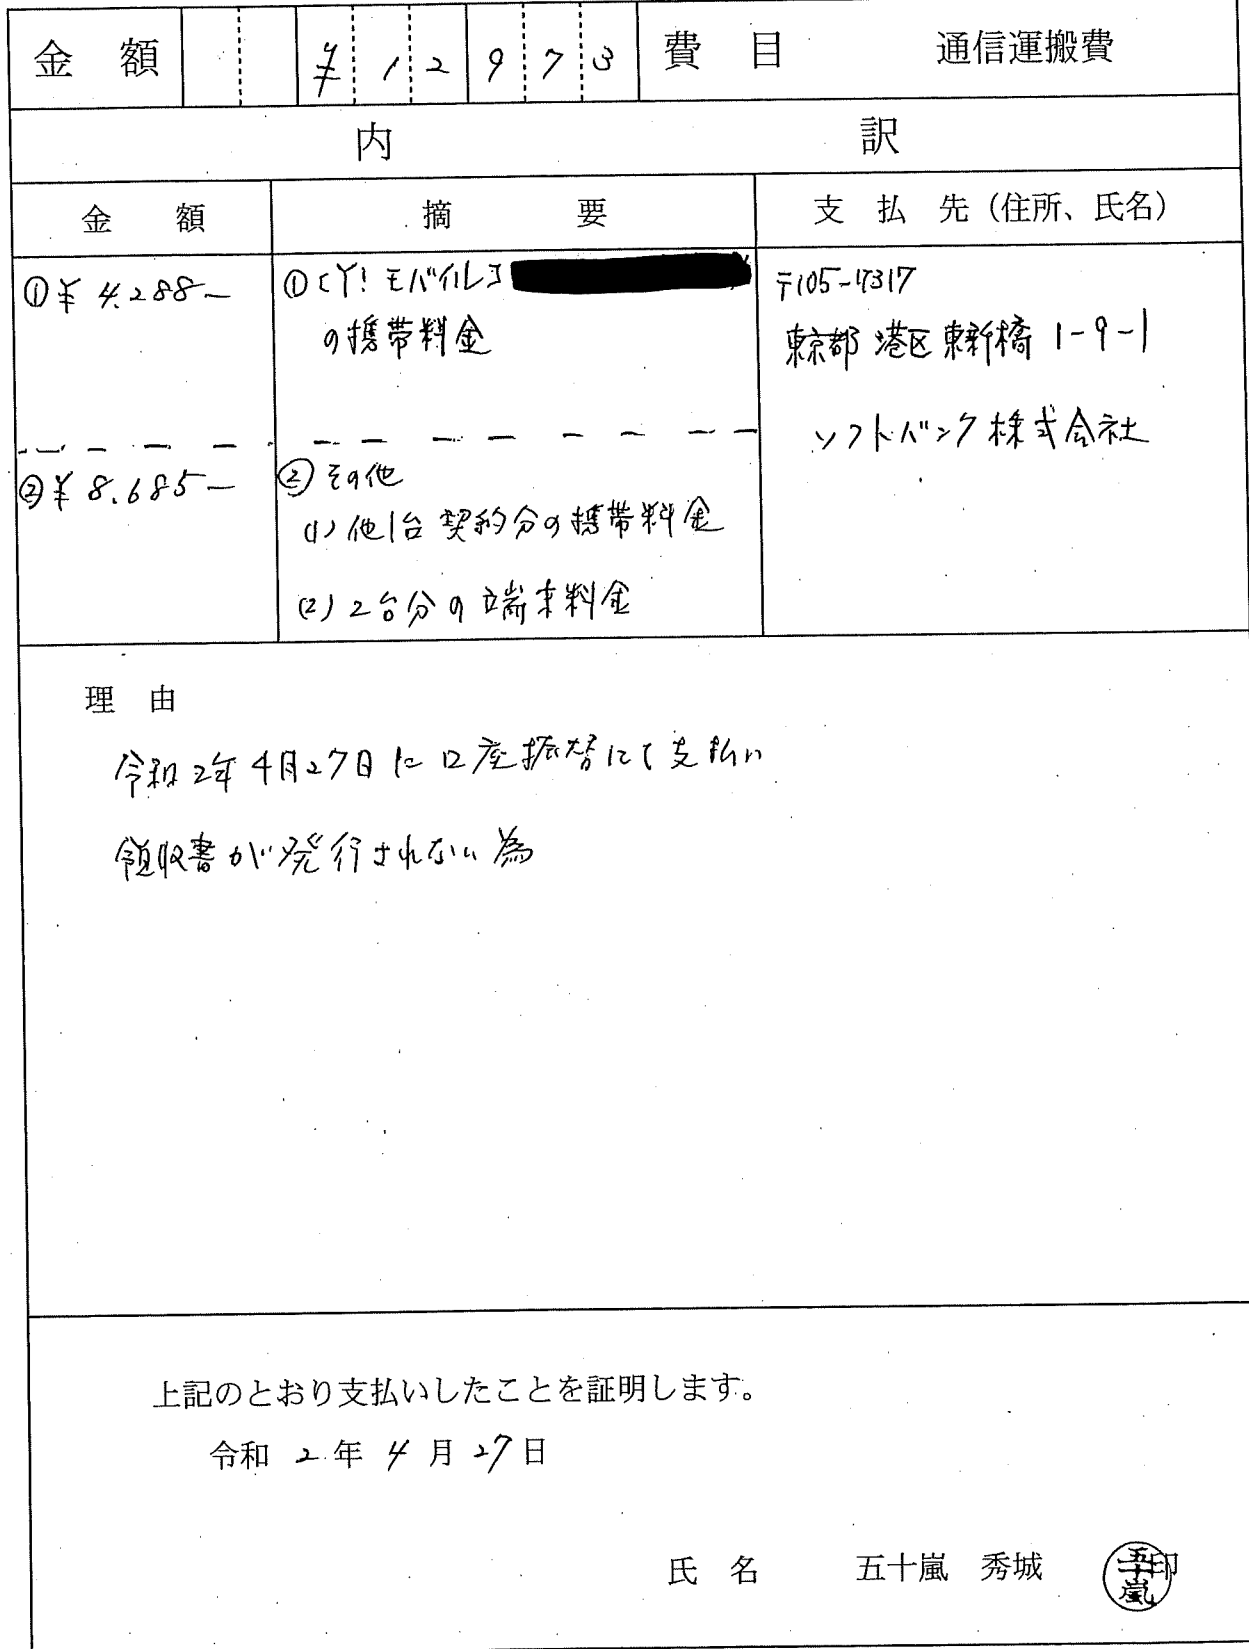 金額 ¥12973 費目 通信運搬費
内訳
金額 摘要 支払先(住所、氏名)
①¥4.288- ①[Y!モバイル]
の携帯料金
〒105-7317
東京都港区東新橋1-9-1
ソフトバンク株式会社
②¥8.685- ②その他
(1)他1台契約分の携帯料金
(2)2台分の端末料金
理由
令和2年4月27日に口座振替にて支払い
領収書が発行されない為
上記のとおり支払いしたことを証明します。
令和2年4月27日
氏名 五十嵐 秀城 印
五十嵐